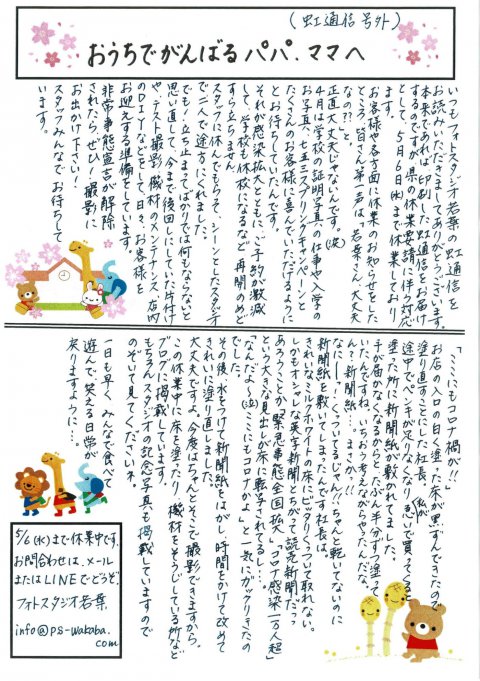 (虹通信号外)
おうちでがんばるパパ、ママへ
いつもフォトスタジオ若葉の虹通信を
お読みいただきましてありがとうございます。
本来であれば印刷した虹通信をお届け
するのですが県の休業要請に伴い対応
として、5月6日(水)まで休業しており
お客様や各方面に休業のお知らせをした
ところ、皆さん第一声は、若葉さん、大丈夫
なの??と。
正直大丈夫じゃないんです。(涙)
4月は学校の証明写真の仕事や入学の
お写真、七五三スプリングキャンペーンと
たくさんのお客様に喜んでいただけるように
とお待ちしていたんです。
それが感染拡大とともに、ご予約が激減
して、学校も休校になるなど再開のめど
すら立ちません。
スタッフに休んでもらって、シーンとしたスタジオ
で二人で途方にくれました。
でも!立ち止まってばかりでは何もならないと
思い直して、今まで後回しにしていた片付け
や、テスト撮影、機材のメンテナンス、店内
のDIYなどをして日々、お客様を
お迎えする準備をしています。
非常事態宣言が解除
されたら、ぜひ!撮影に
お出かけ下さい!
スタッフみんなでお待ちして
います。
「ここにもコロナ禍が!!」
お店の入口の白く塗った床が黒ずんできたので
塗り直すことにした社長、
途中でペンキが足りなくなり私が急いで買ってくると
塗った所に新聞紙が敷かれてました。
手が届かなくなるからと、たぶん半分ずつ塗って
いたんですね。いろいろ考えながらやったんだな。
ん!?新聞紙…。まさか…!!
なにー!くっついてるじゃん!ちゃんと乾いてないのに
新聞紙を敷いてしまったんです社長は。
きれいなミルクホワイトの床にピッタリくっついて取れない。
しかもオシャレな英字新聞とちがって読売新聞だっつ
あろうことか「緊急事態全国拡大」「コロナ感染一万人超」
という大きな見出しが床に転写されてるし…。
「なんだよ〜(泣)ここにもコロナかよ」と一気にガックリきたの
でした。
その後、水をつけて新聞紙をはがし、時間をかけて改めて
きれいに塗り直しました。
大丈夫ですよ。今度はちゃんとそこで撮影できますから。
この休業中に床を塗ったり、機材をそうじしている所など
ブログに掲載しています。
もちろんスタジオの記念写真も掲載していますので
のぞいて見てくださいネ。
一日も早く、みんなで食べ
遊んで、笑える日常が
戻りますように…
5/6(水)まで休業中です。
お問合わせは、メール
またはLINEでどうぞ。
フォトスタジオ若葉
info@ps-wakaba.
com